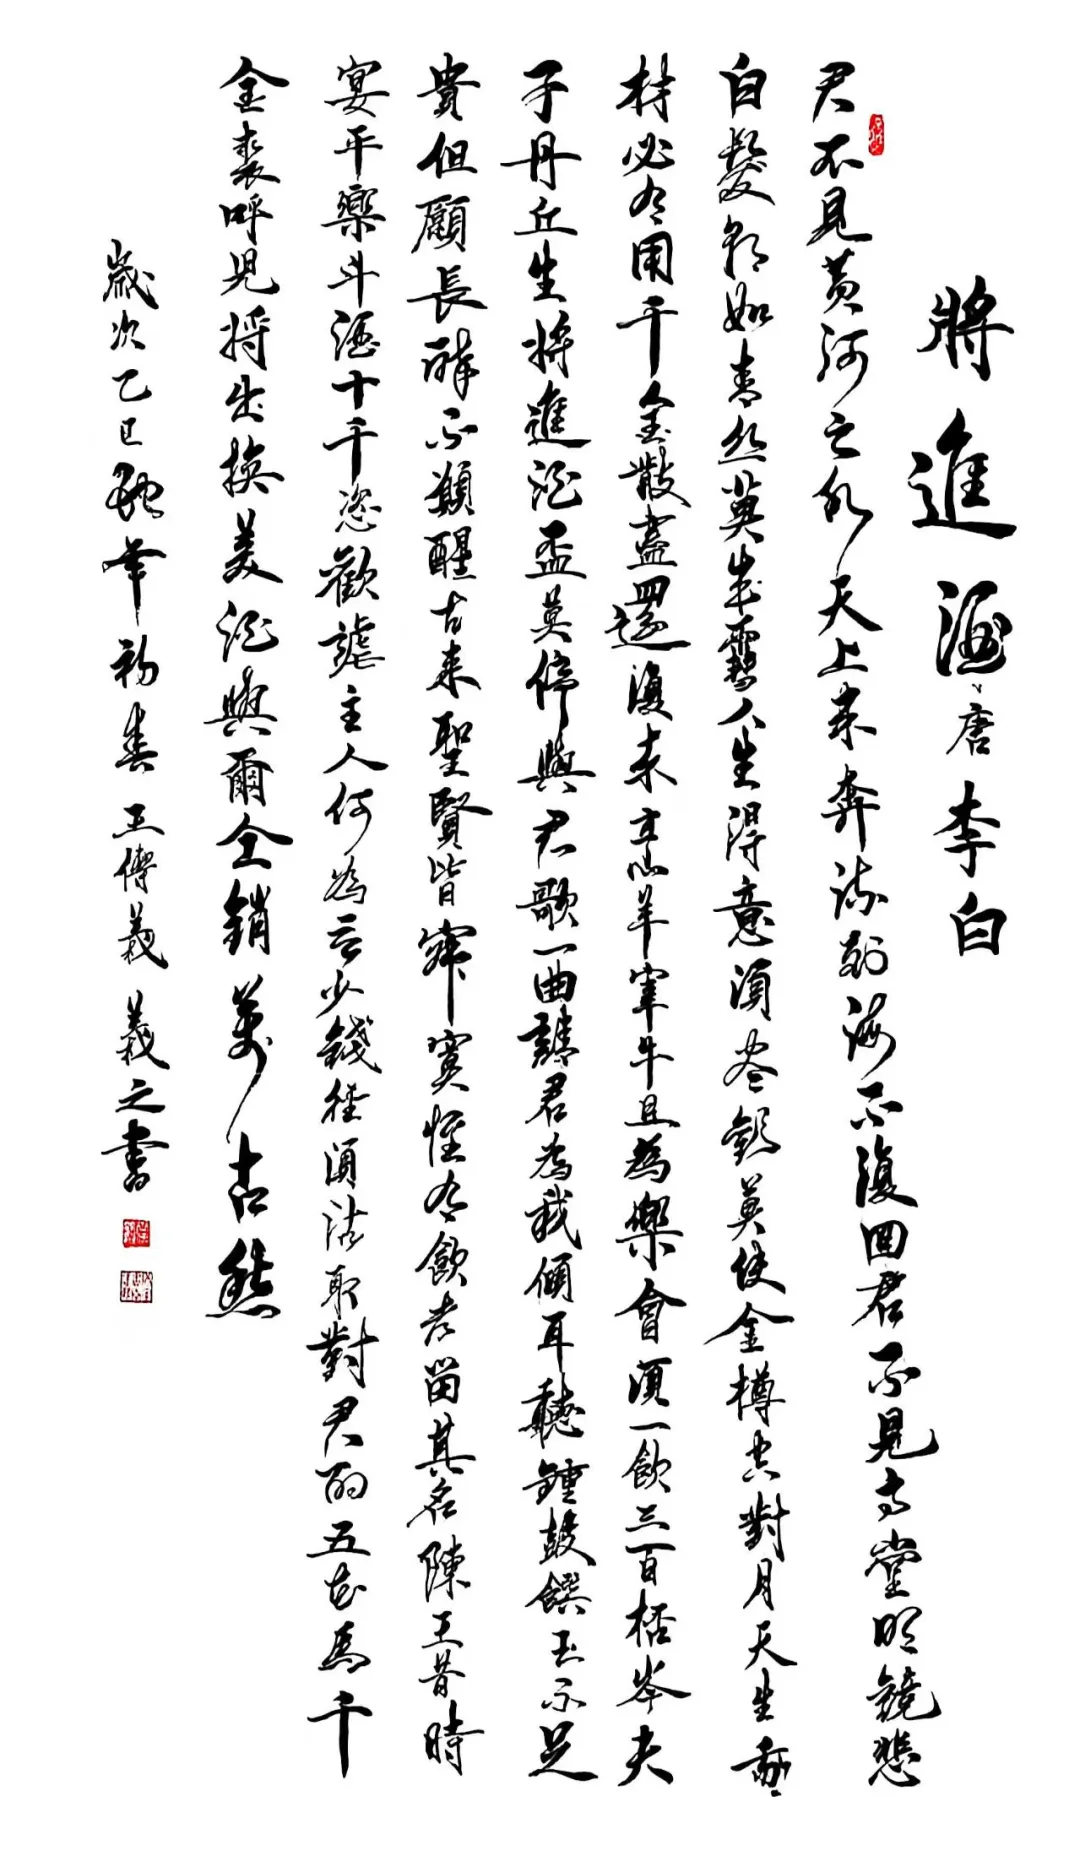 將進酒 唐 李白
君不見黃河之水天上來奔流到海不復回君不見高堂明鏡悲
白髮朝如青絲莫成雪人生得意須盡歡莫使金樽空對月天生我
材必有用千金散盡還復來烹羊宰牛且為樂會須一飲三百桮岑夫
子丹丘生將進酒盃莫停與君歌一曲請君為我傾耳聽鍾鼓饌玉不足
貴但願長醉不願醒古來聖賢皆寂寞惟有飲者留其名陳王昔時
宴平樂斗酒十千恣歡謔主人何為言少錢徑須沽取對君酌五花馬千
金裘呼兒將出換美酒與爾仝銷萬古愁
歲次乙巳蛇年初春 王傳義 義之書